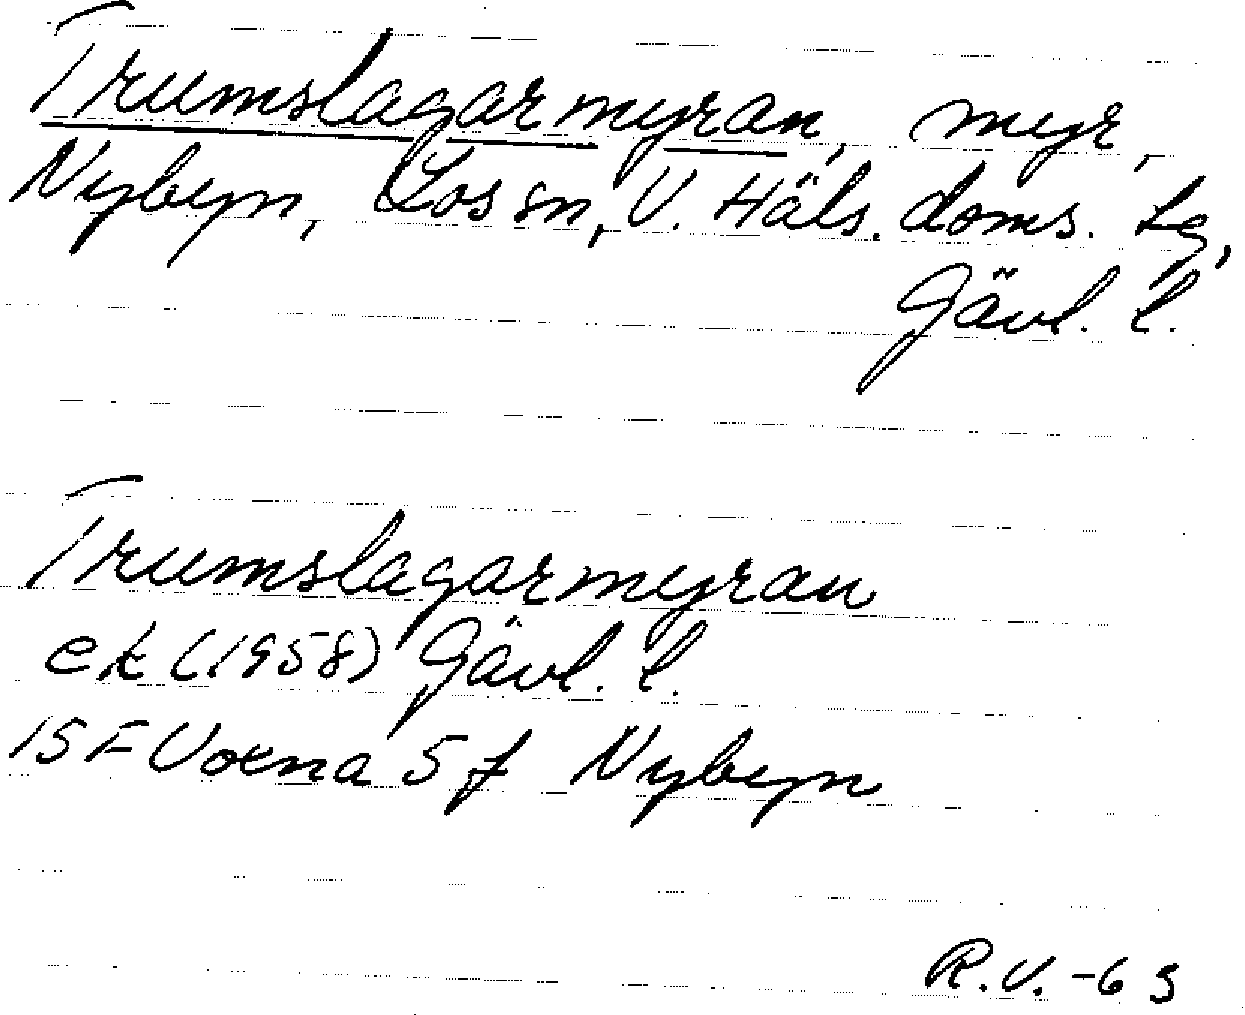 Trumslagarmyran, myr,
Nybyn, Los sn, V. Häls. doms. lg,
Gävl. l.
Trumslagarmyran
ek (1958) Gävl. l.
15 F Voxna 5 f Nybyn
R.V. -63